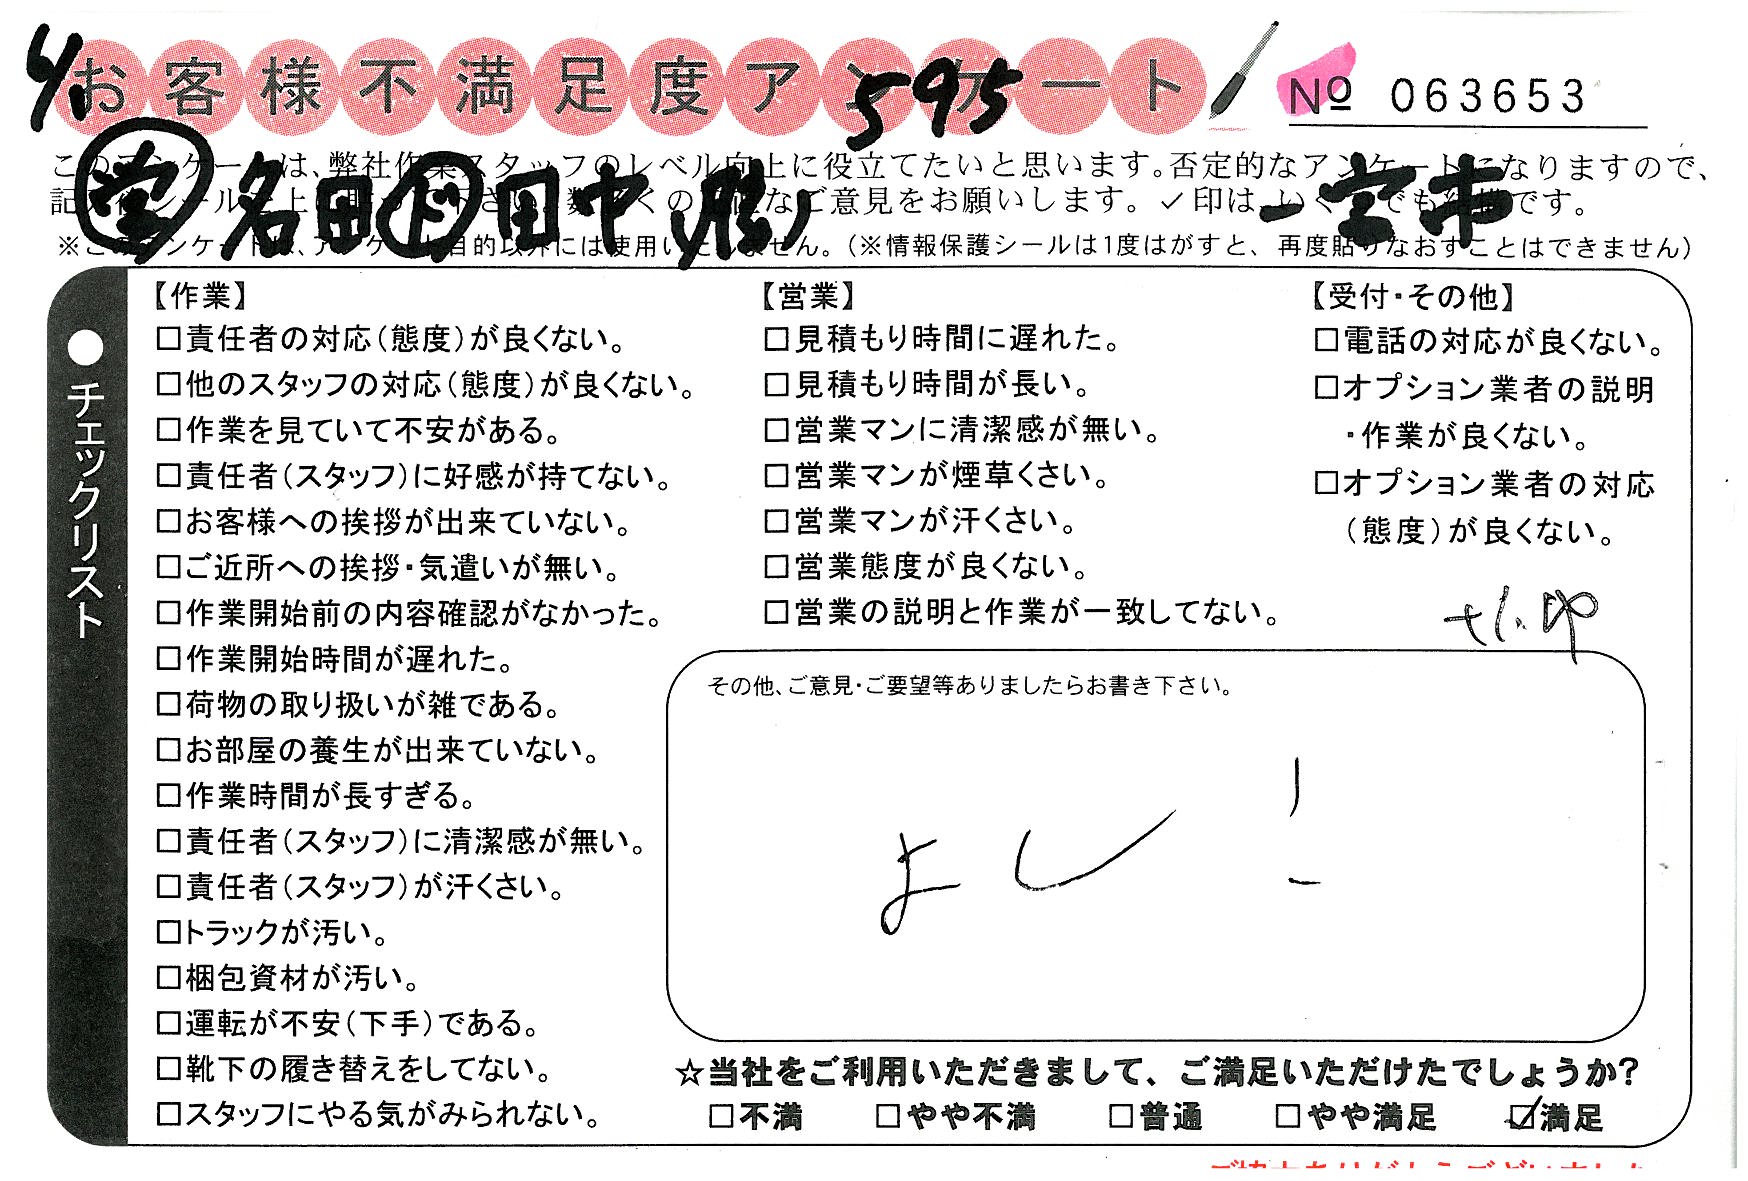 お客様不満足度アンケート
№ 063653
4/1
595
営 名田 ド 田中(勝) 一宮市
このアンケートは、弊社作業スタッフのレベル向上に役立てたいと思います。否定的なアンケートになりますので、
数多くの ご意見をお願いします。✓印は、いくつでも結構です。
※このアンケートは、アンケート目的以外には使用いたしません。(※情報保護シールは1度はがすと、再度貼りなおすことはできません)
●チェックリスト
【作業】
□責任者の対応(態度)が良くない。
□他のスタッフの対応(態度)が良くない。
□作業を見ていて不安がある。
□責任者(スタッフ)に好感が持てない。
□お客様への挨拶が出来ていない。
□ご近所への挨拶・気遣いが無い。
□作業開始前の内容確認がなかった。
□作業開始時間が遅れた。
□荷物の取り扱いが雑である。
□お部屋の養生が出来ていない。
□作業時間が長すぎる。
□責任者(スタッフ)に清潔感が無い。
□責任者(スタッフ)が汗くさい。
□トラックが汚い。
□梱包資材が汚い。
□運転が不安(下手)である。
□靴下の履き替えをしてない。
□スタッフにやる気がみられない。
【営業】
□見積もり時間に遅れた。
□見積もり時間が長い。
□営業マンに清潔感が無い。
□営業マンが煙草くさい。
□営業マンが汗くさい。
□営業態度が良くない。
□営業の説明と作業が一致してない。
【受付・その他】
□電話の対応が良くない。
□オプション業者の説明
・作業が良くない。
□オプション業者の対応
(態度)が良くない。
その他、ご意見・ご要望等ありましたらお書き下さい。
よし!
☆当社をご利用いただきまして、ご満足いただけたでしょうか?
□不満 □やや不満 □普通 □やや満足 ☑満足